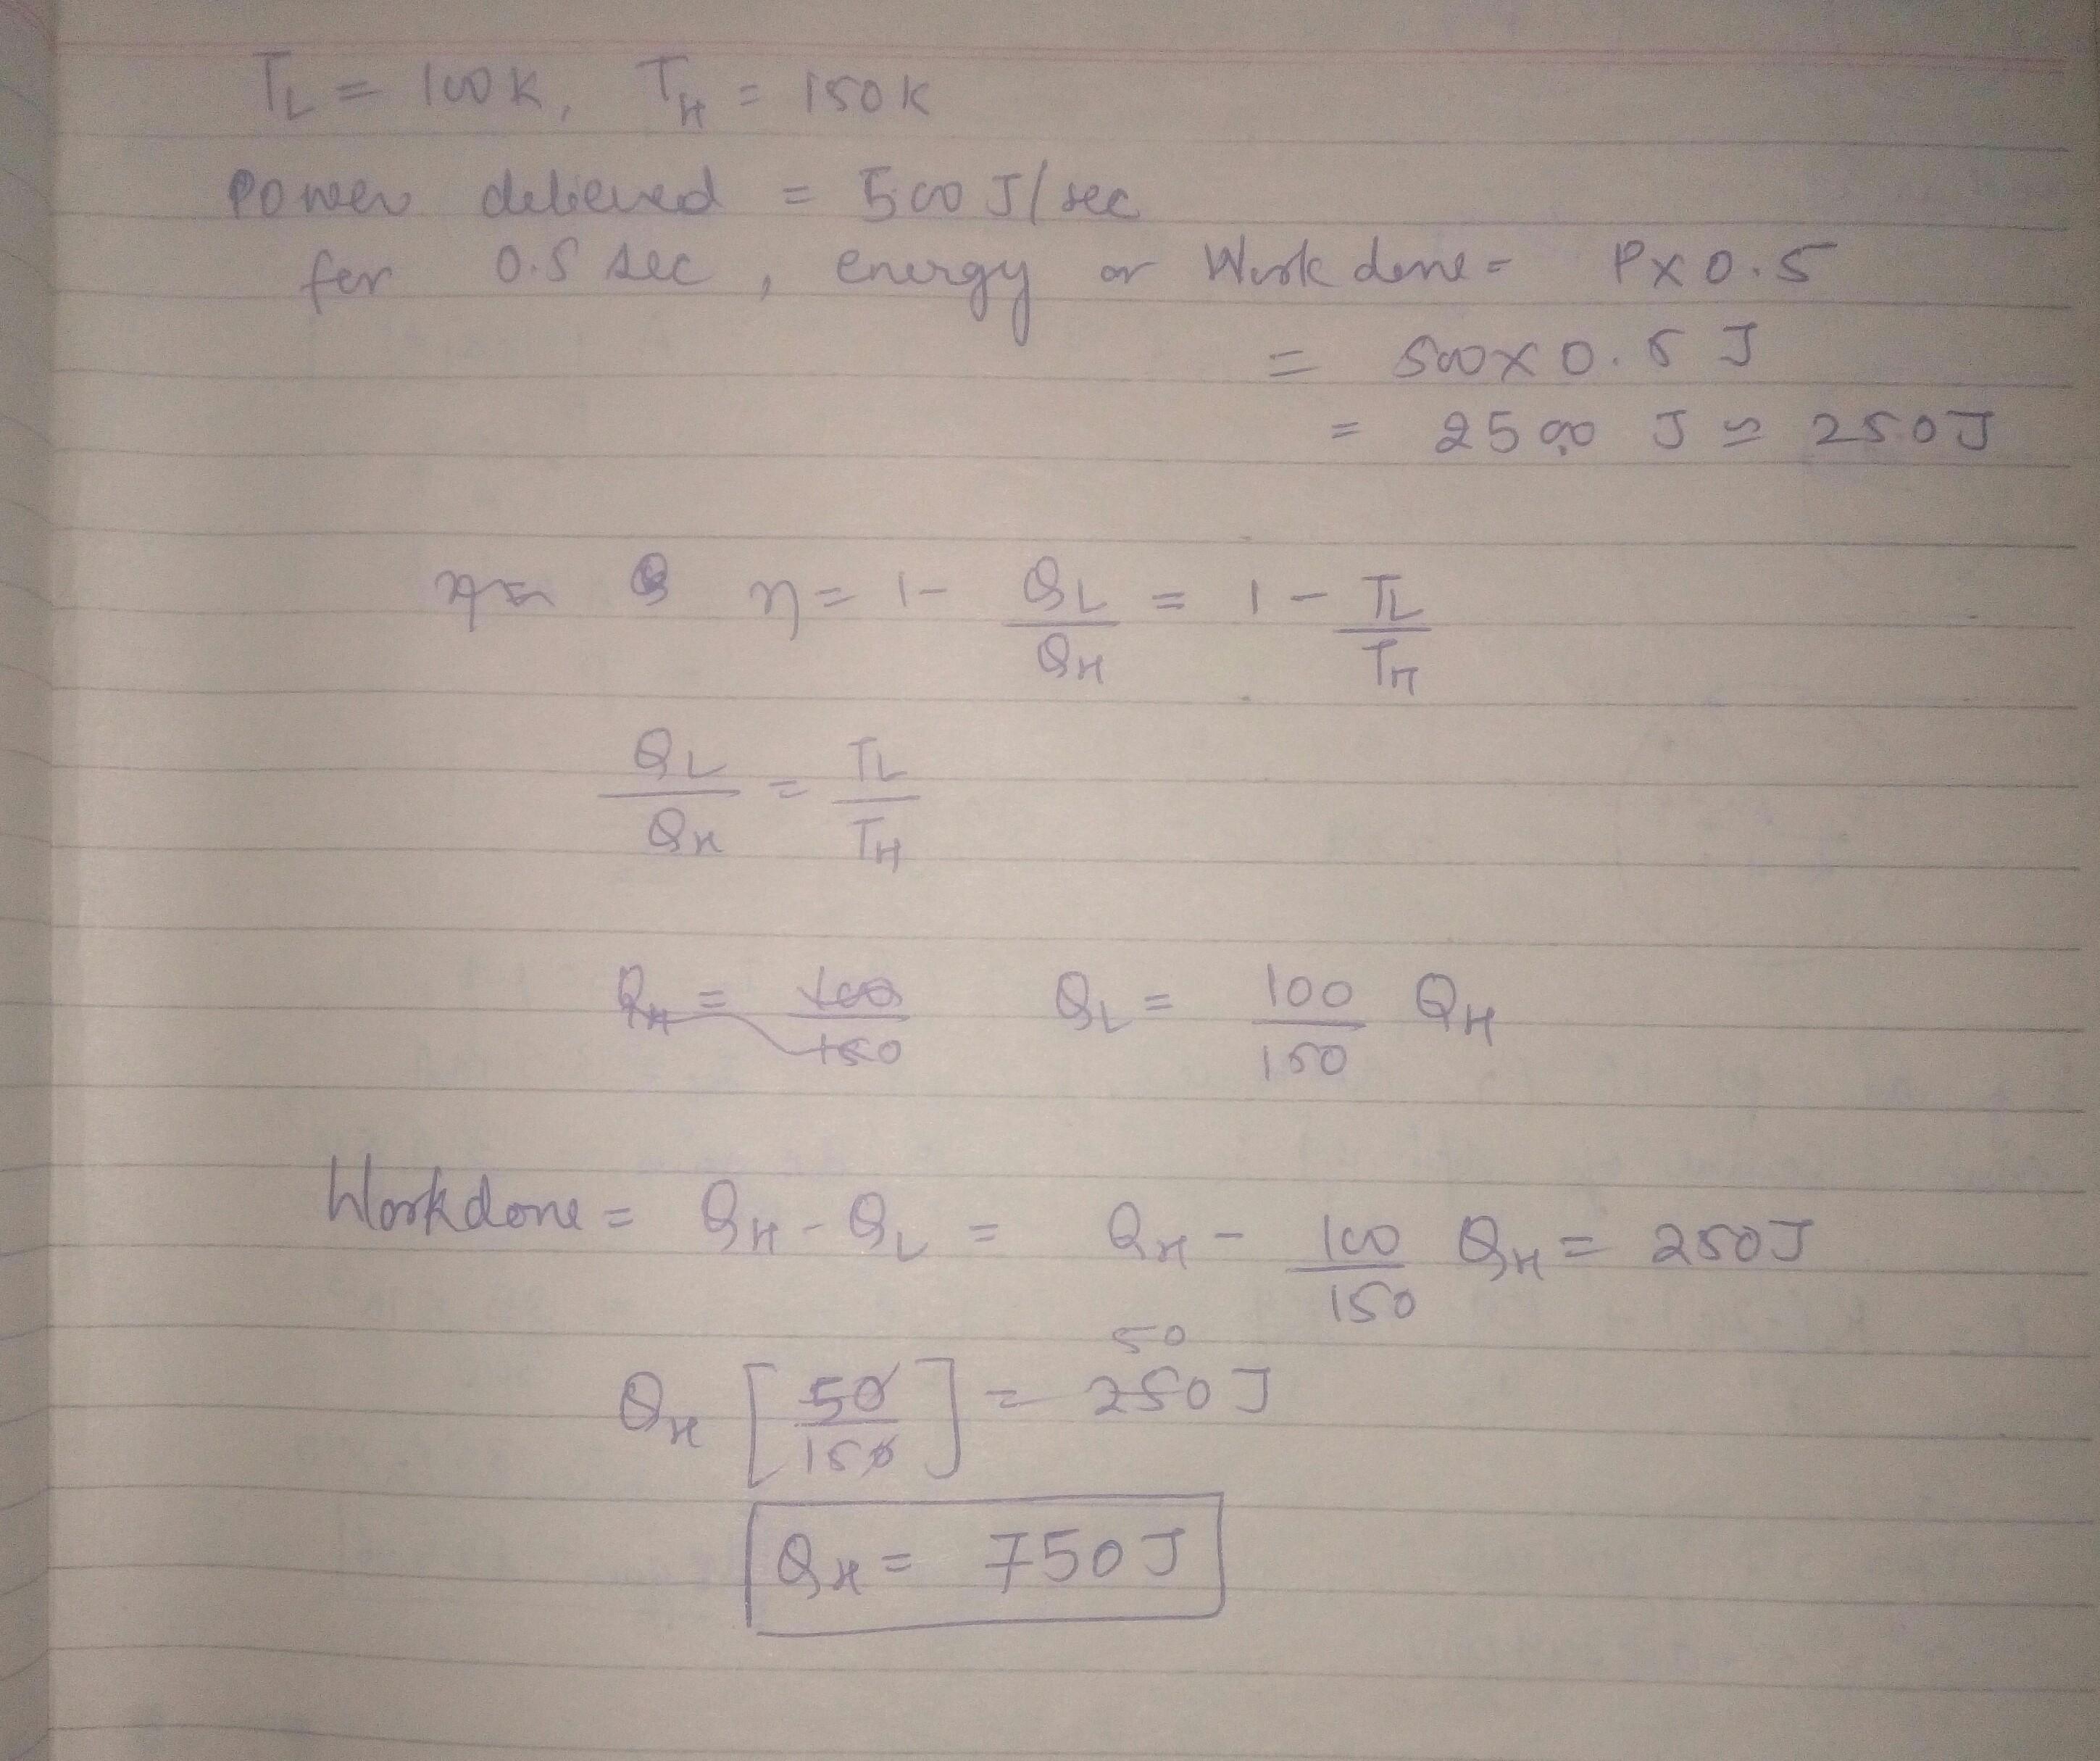 T_L = 100K, T_H = 150K
Power delieved = 500 J/sec
for 0.5 sec, energy or Work done = P×0.5
= 500×0.5 J
= 250.0 J = 250J
η = Q η = 1 - Q_L/Q_H = 1 - T_L/T_H
Q_L/Q_H = T_L/T_H
Q_H = 100/150 Q_L = 100/150 Q_H
Workdone = Q_H - Q_L = Q_H - 100/150 Q_H = 250J
50
Q_H [50/150] = 250J
Q_H = 750J